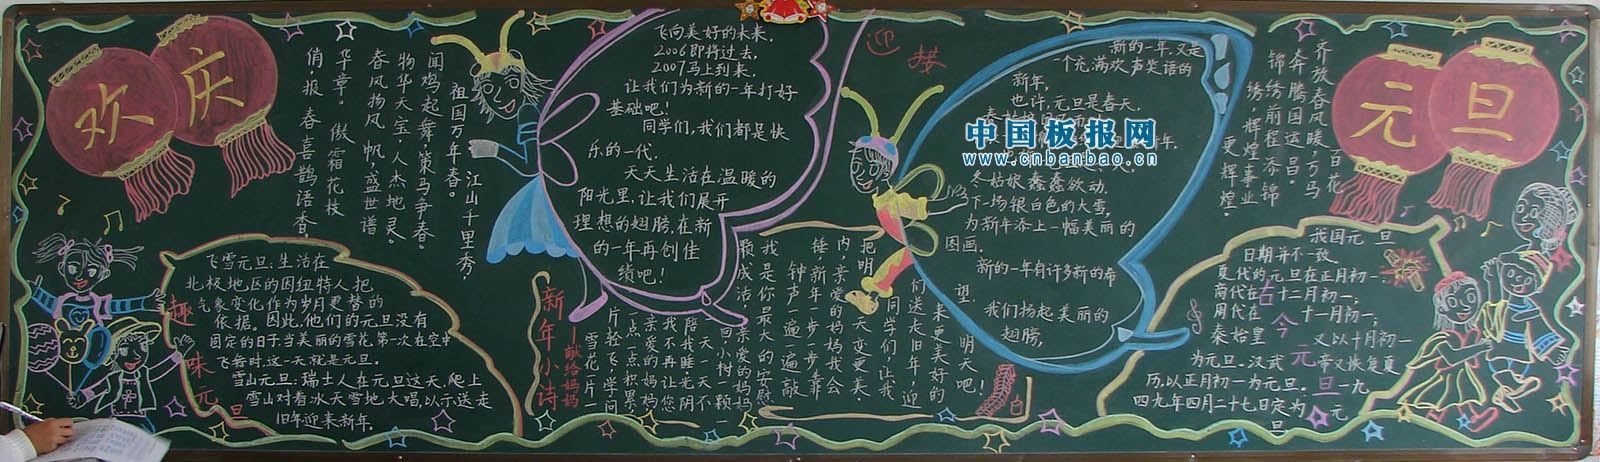 欢庆
闻鸡起舞，策马争春。
物华天宝，人杰地灵。
春风扬风帆盛世谱
华章。傲霜花枝
俏，报春喜鹊语香。
祖国万年春。
江山千里秀，
飞雪元旦：生活在
北极地区的因纽特人把
气象变化作为岁月更替的
依据。因此，他们的元旦没有
固定的日子当美丽的雪花第一次在空中
飞舞时，这一天就是元旦。
雪山元旦：瑞士人在元旦这天，爬上
雪山对着冰天雪地大唱，以示送走
旧年迎来新年。
趣味元旦
飞向美好的未来。
2006即将过去，
2007马上到来，
让我们为新的一年打好
基础吧！
同学们，我们都是快
乐的一代。
天天生活在温暖的
阳光里，让我们展开
理想的翅膀，在新
的一年再创佳
绩吧！
新年小诗
——献给妈妈
雪花一片一
片轻轻飞，学问
一点一点积累，
亲爱的妈妈您
陪我不再让光阴
一天一天
回小树一颗一
亲爱的妈妈
是你最大的安慰
我成
钟声一遍一遍敲
新年一步一步靠
内，亲爱的妈妈我会
把明天变更美
同学们，让我
们送走旧年，迎
来更美好的
明天吧！
迎接
新的一年，又是
一个充满欢声笑语的
新年，
也许，元旦是春天，
冬姑娘蠢蠢欲动，
下一场银白色的大雪，
为新年添上一幅美丽的
图画。
新的一年有许多新的希
望，
我们扬起美丽的
翅膀，
中国板报网
www.cnbanbao.cn
齐放春风暖，万马
奔腾国运昌。
锦绣前程添锦
绣，辉煌事业
更辉煌。
百花
元旦
我国元旦
日期并不一致
夏代的元旦在正月初一，
商代在十二月初一，
周代在十一月初一，
秦始皇又以十月初一
为元旦。汉武帝又恢复夏
历，以正月初一为元旦。一九
四九年四月二十七日定为元
旦
古今元旦